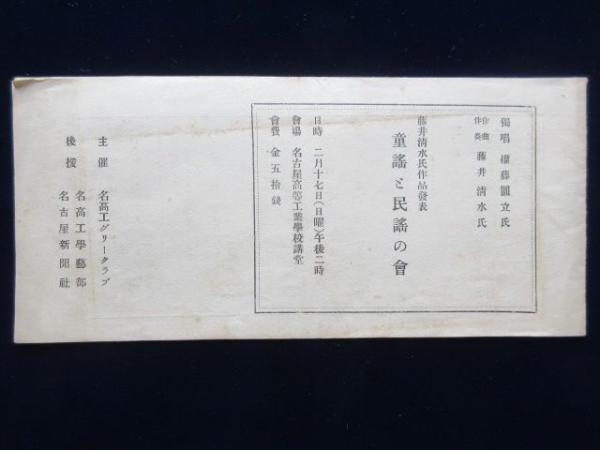 獨唱 權藤圓立氏
作曲 伴奏 藤井清水氏
藤井清水氏作品發表
童謠と民謠の會
日時 二月十七日(日曜)午後二時
會場 名古屋高等工業學校講堂
會費 金五拾錢
主催 名高工グリークラブ
後援 名高工學藝部
名古屋新聞社